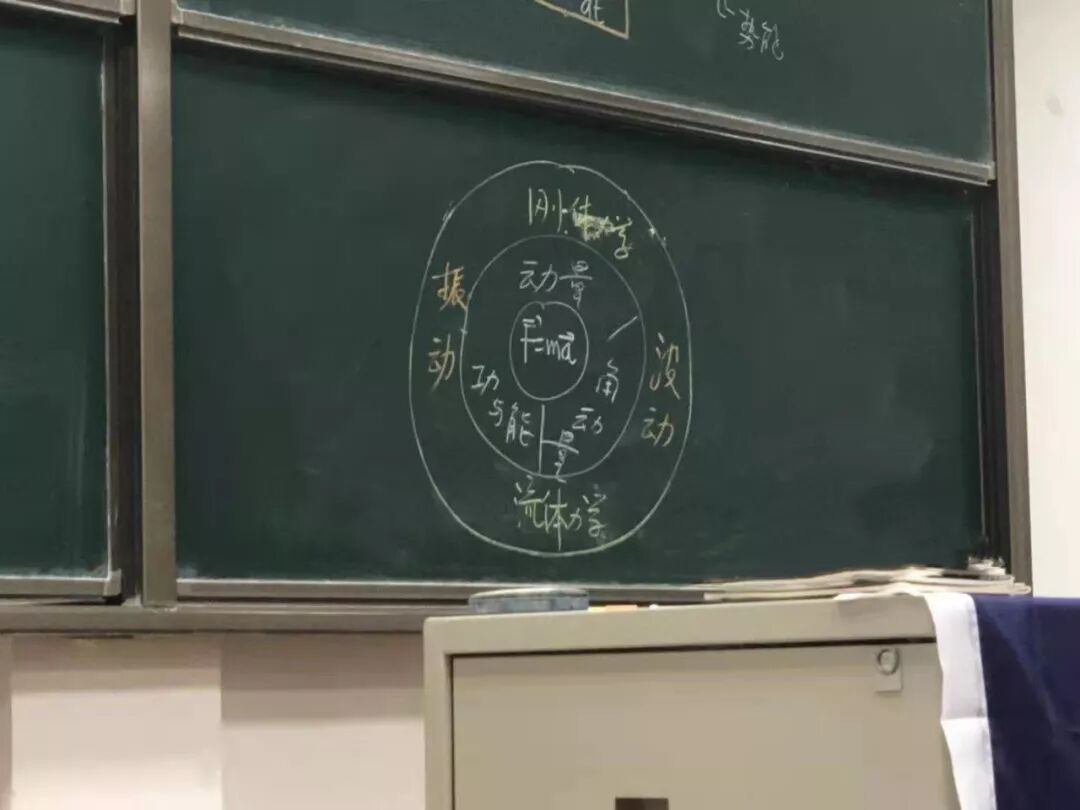 势能
刚体力学
动量
振动
F=ma
波动
功与能
角动量
流体力学